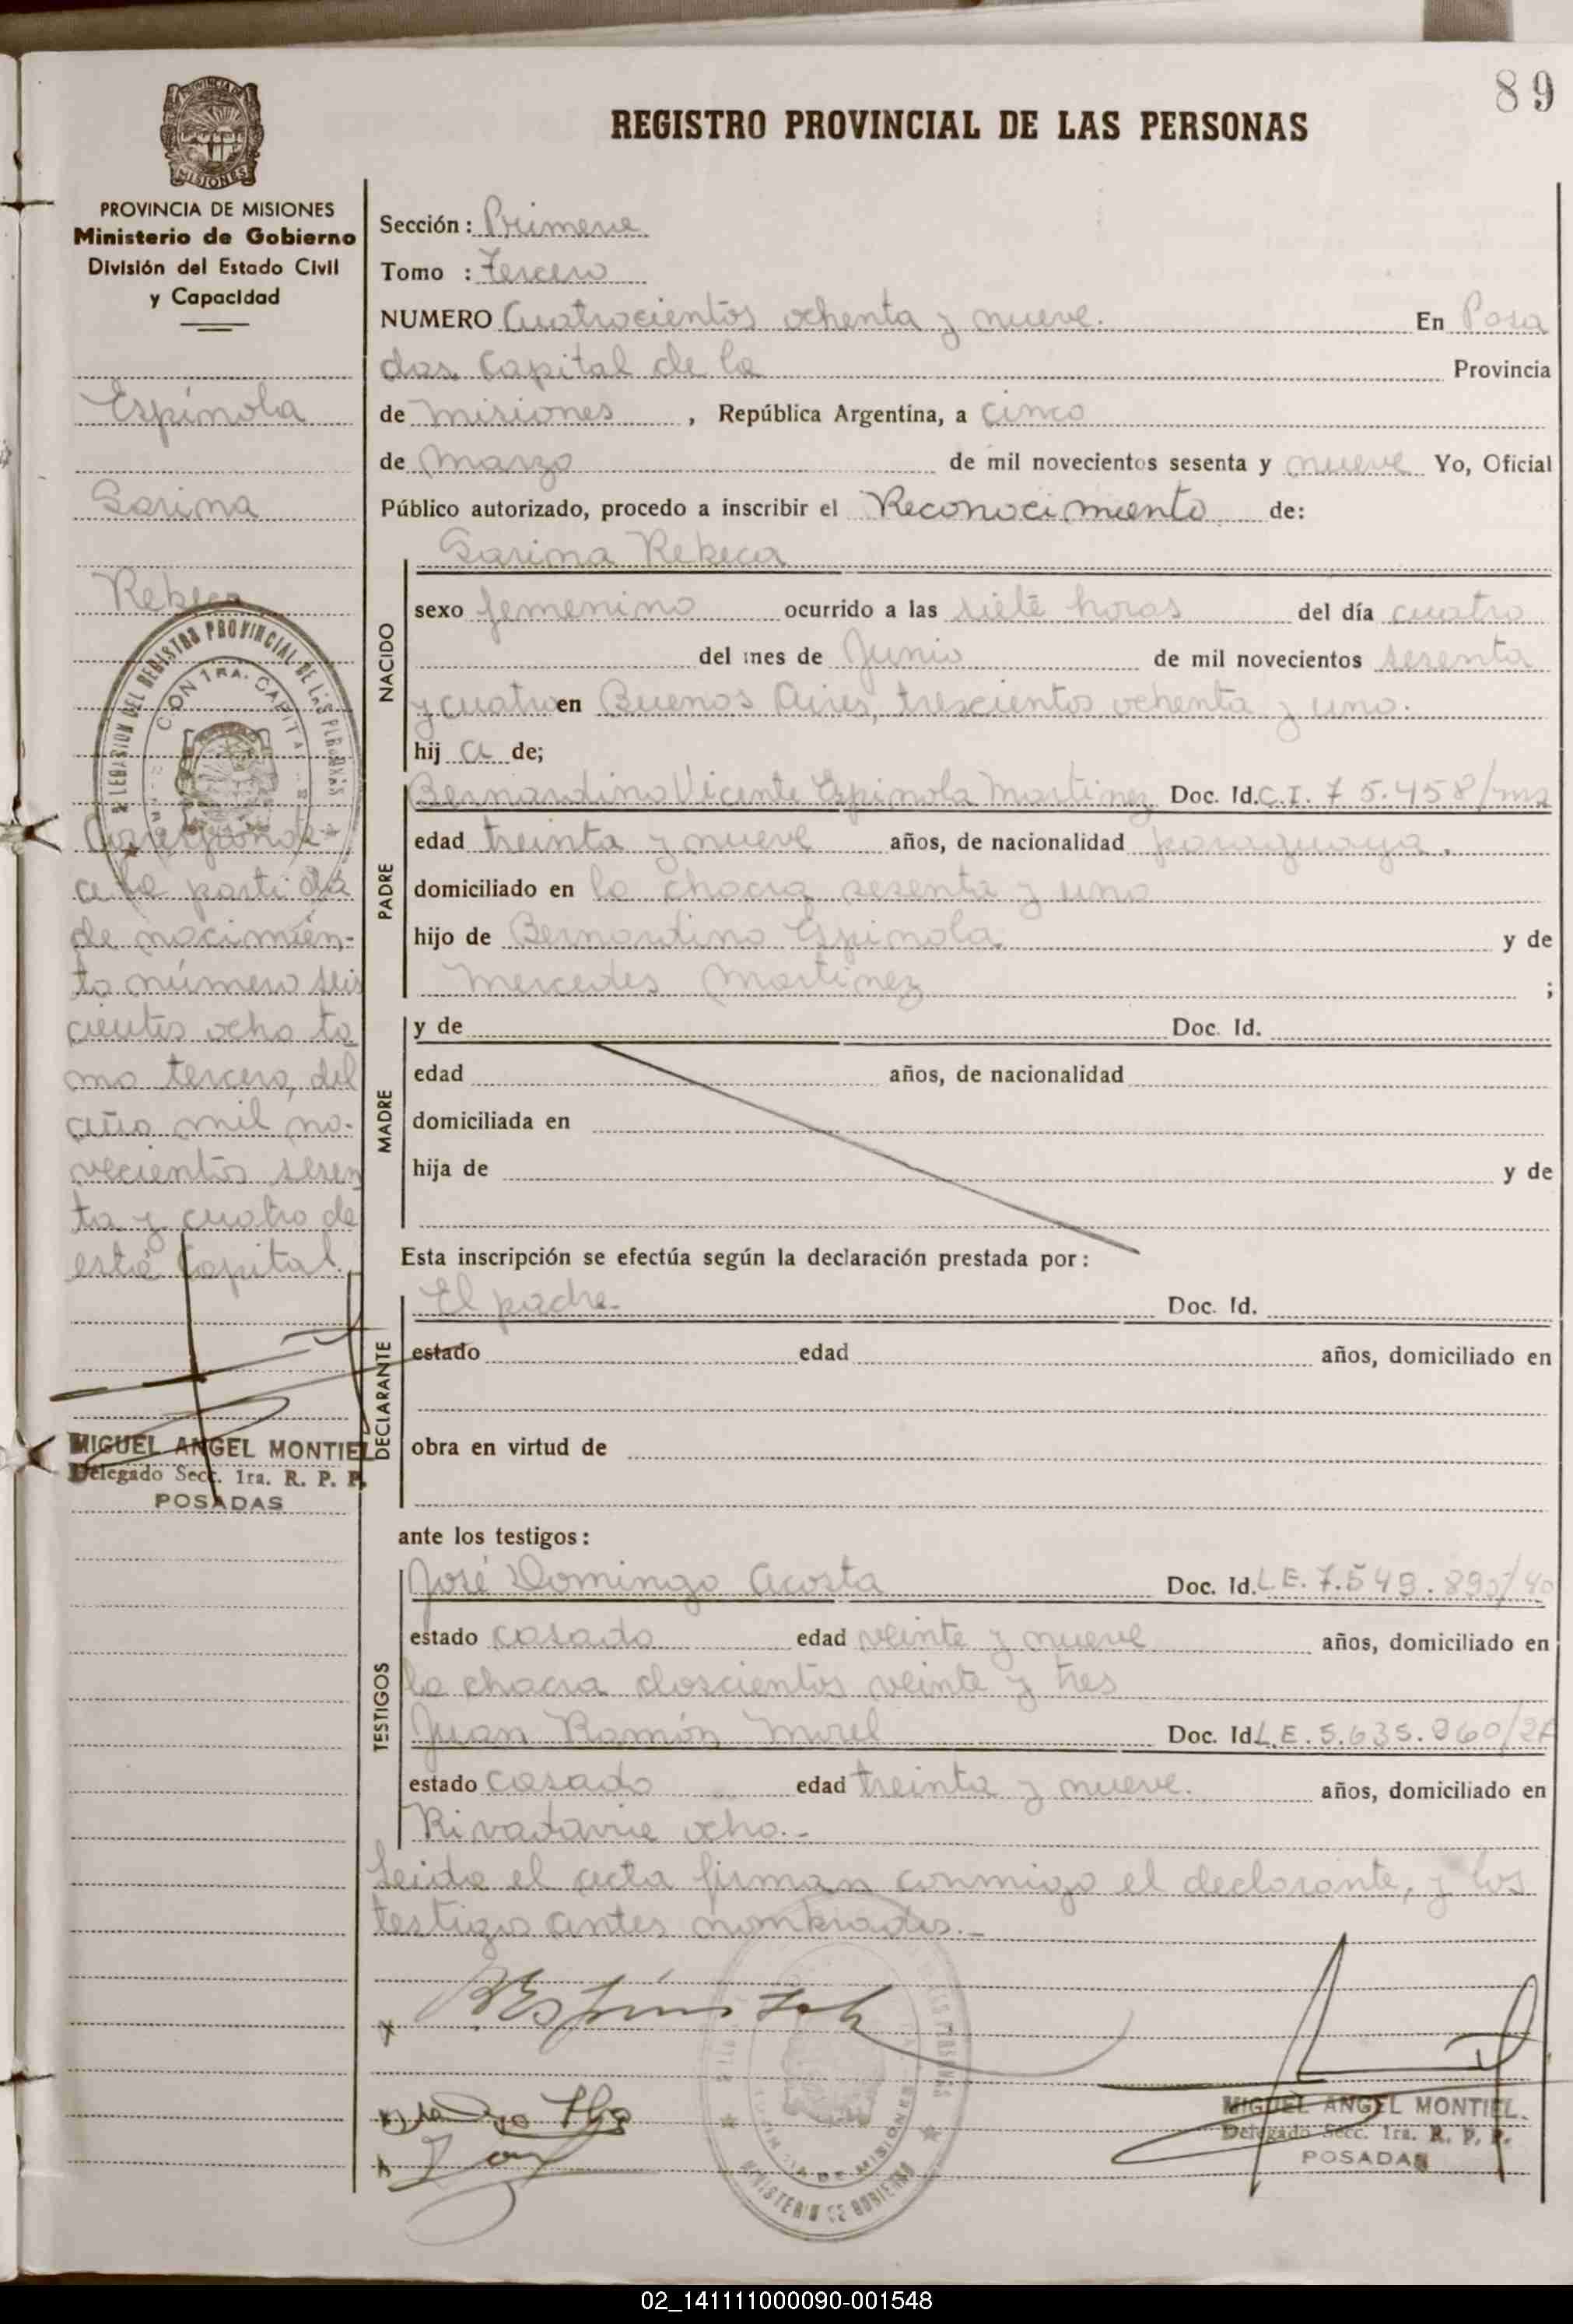 89
REGISTRO PROVINCIAL DE LAS PERSONAS
PROVINCIA DE MISIONES
Ministerio de Gobierno
División del Estado Civil
y Capacidad
Espínola
Garina
Rebeca
Corresponde
a la partida
de nacimien-
to número seis
cientos ocho to
mo tercero, del
año mil no-
vecientos sesen
ta y cuatro de
esta Capital.
MIGUEL ANGEL MONTIEL
Delegado Secc. 1ra. R. P. P.
POSADAS
Sección: Primera
Tomo : Tercero
NUMERO Cuatrocientos ochenta y nueve. En Posa
das Capital de la Provincia
de Misiones , República Argentina, a cinco
de Marzo de mil novecientos sesenta y nueve Yo, Oficial
Público autorizado, procedo a inscribir el Reconocimiento de:
Garina Rebeca
NACIDO
sexo femenino ocurrido a las siete horas del día cuatro
del mes de Junio de mil novecientos sesenta
y cuatro en Buenos Aires, trescientos ochenta y uno.
hij a de;
PADRE
Bernardino Vicente Espinola Martinez Doc. Id. C.I. 75.458/ms
edad treinta y nueve años, de nacionalidad paraguaya.
domiciliado en la chacra sesenta y uno
hijo de Bernardino Espinola y de
Mercedes Martinez ;
MADRE
y de Doc. Id.
edad años, de nacionalidad
domiciliada en
hija de y de
Esta inscripción se efectúa según la declaración prestada por:
DECLARANTE
El padre.- Doc. Id.
estado edad años, domiciliado en
obra en virtud de
ante los testigos:
TESTIGOS
José Domingo Acosta Doc. Id. L.E. 7.549.890/40
estado casado edad veinte y nueve años, domiciliado en
la chacra doscientos veinte y tres
Juan Ramón Morel Doc. Id. L.E. 5.635.960
estado casado edad treinta y nueve. años, domiciliado en
Rivadavia ocho.-
Leida el acta firman conmigo el declarante, y los
testigos antes nombrados.-
MIGUEL ANGEL MONTIEL.
Delegado Secc. 1ra. R. P. P.
POSADAS
MINISTERIO DE GOBIERNO
02_141111000090-001548